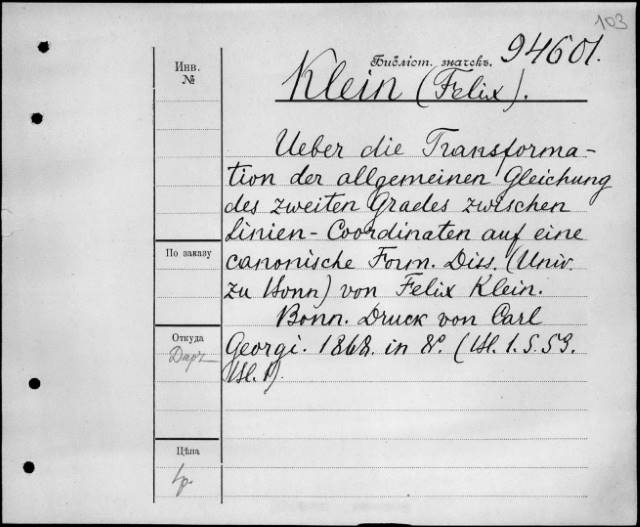 103
Инв.
№
Библіот. значекъ.
94601.
Klein (Felix).
Ueber die Transforma-
tion der allgemeinen Gleichung
des zweiten Grades zwischen
Linien-Coordinaten auf eine
canonische Form. Diss. (Univ.
zu Bonn) von Felix Klein.
Bonn. Druck von Carl
Georgi. 1868. in 8º. (Bl. 1. S. 53.
Bl. 1).
По заказу
Откуда
Цѣна